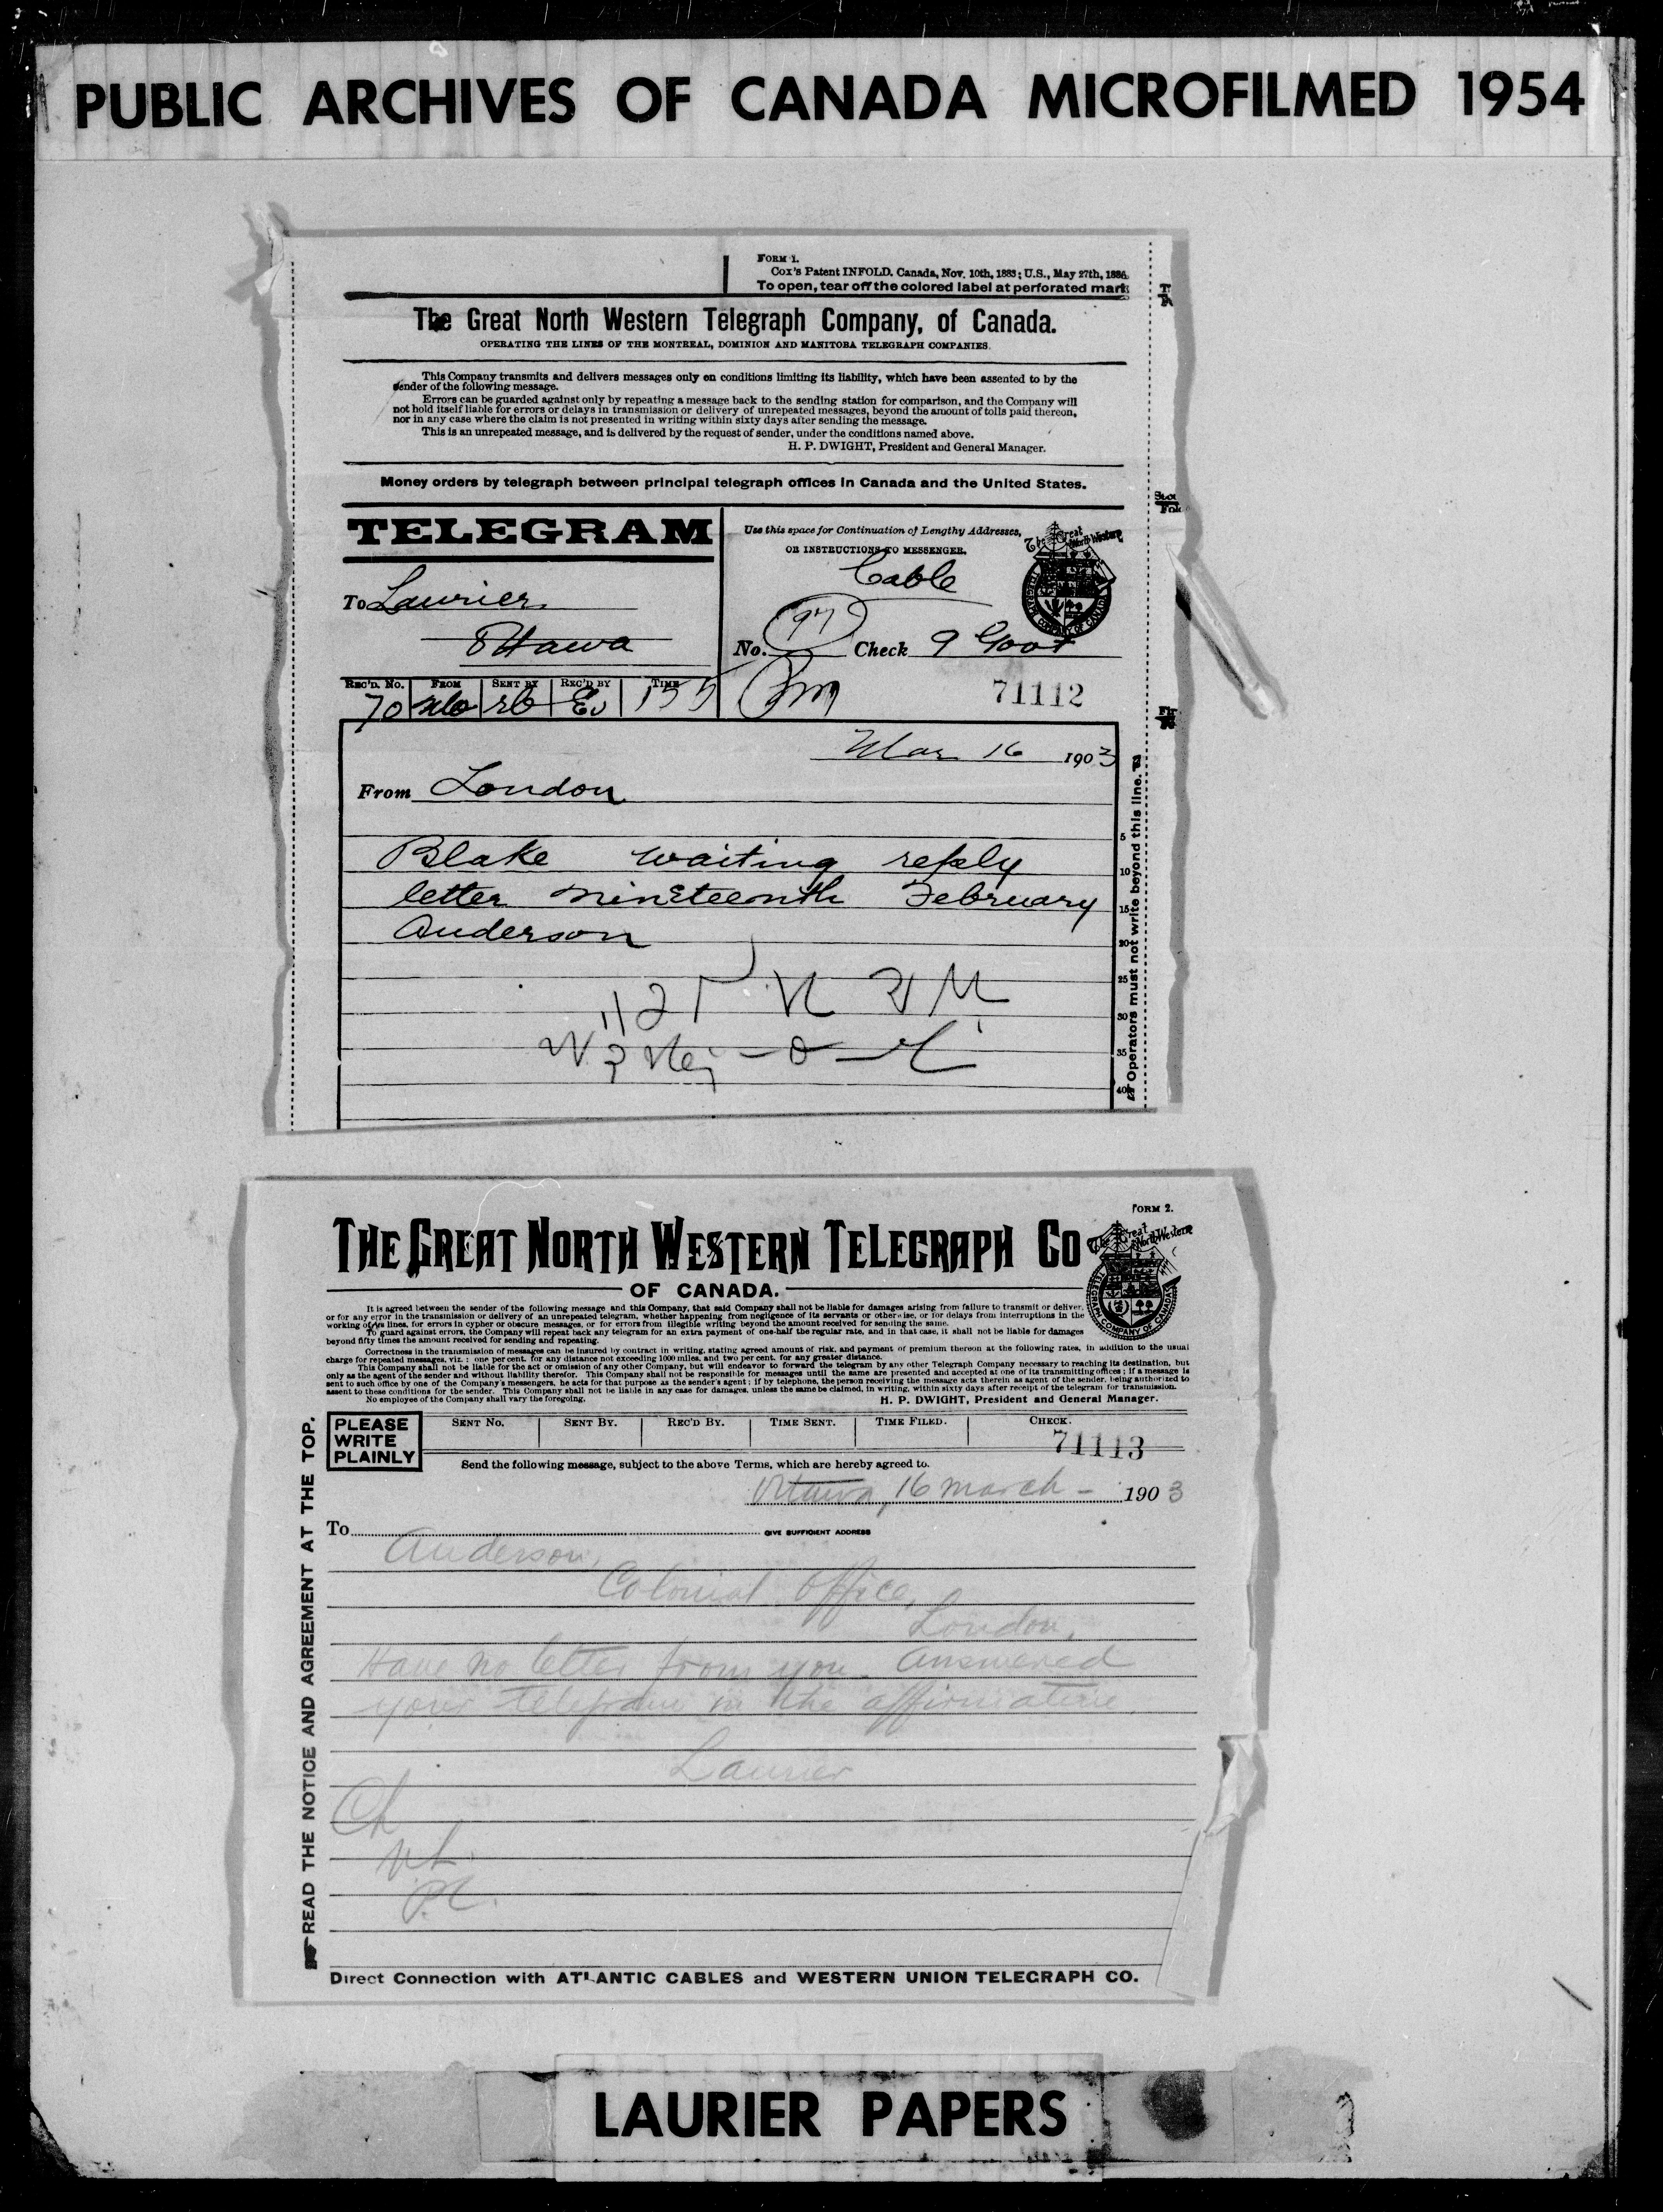 PUBLIC ARCHIVES OF CANADA MICROFILMED 1954
FORM 1.
Cox's Patent INFOLD. Canada, Nov. 10th, 1883; U.S., May 27th, 1886.
To open, tear off the colored label at perforated mark
The Great North Western Telegraph Company, of Canada.
OPERATING THE LINES OF THE MONTREAL, DOMINION AND MANITOBA TELEGRAPH COMPANIES.
This Company transmits and delivers messages only on conditions limiting its liability, which have been assented to by the
sender of the following message.
Errors can be guarded against only by repeating a message back to the sending station for comparison, and the Company will
not hold itself liable for errors or delays in transmission or delivery of unrepeated messages, beyond the amount of tolls paid thereon,
nor in any case where the claim is not presented in writing within sixty days after sending the message.
This is an unrepeated message, and is delivered by the request of sender, under the conditions named above.
H. P. DWIGHT, President and General Manager.
Money orders by telegraph between principal telegraph offices in Canada and the United States.
TELEGRAM
Use this space for Continuation of Lengthy Addresses,
OR INSTRUCTIONS TO MESSENGER.
The Great North Western
TELEGRAPH COMPANY OF CANADA
Cable
To Laurier
Ottawa
No. 97 Check 9 Govt
REC'D. No. FROM SENT BY REC'D BY TIME
70 155
71112
Mar 16 1903
From London
Blake waiting reply
letter nineteenth February
Anderson
5
10
15
20
25
30
35
40
Operators must not write beyond this line.
FORM 2.
THE GREAT NORTH WESTERN TELEGRAPH CO
OF CANADA.
The Great North Western
TELEGRAPH COMPANY OF CANADA
It is agreed between the sender of the following message and this Company, that said Company shall not be liable for damages arising from failure to transmit or deliver,
or for any error in the transmission or delivery of an unrepeated telegram, whether happening from negligence of its servants or otherwise, or for delays from interruptions in the
working of its lines, for errors in cypher or obscure messages, or for errors from illegible writing beyond the amount received for sending the same.
To guard against errors, the Company will repeat back any telegram for an extra payment of one-half the regular rate, and in that case, it shall not be liable for damages
beyond fifty times the amount received for sending and repeating.
Correctness in the transmission of messages can be insured by contract in writing, stating agreed amount of risk, and payment of premium thereon at the following rates, in addition to the usual
charge for repeated messages, viz.: one per cent. for any distance not exceeding 1000 miles, and two per cent. for any greater distance.
This Company shall not be liable for the act or omission of any other Company, but will endeavor to forward the telegram by any other Telegraph Company necessary to reaching its destination, but
only as the agent of the sender and without liability therefor. This Company shall not be responsible for messages until the same are presented and accepted at one of its transmitting offices; if a message is
sent to such office by one of the Company's messengers, he acts for that purpose as the sender's agent; if by telephone, the person receiving the message acts therein as agent of the sender, being authorized to
assent to these conditions for the sender. This Company shall not be liable in any case for damages, unless the same be claimed, in writing, within sixty days after receipt of the telegram for transmission.
No employee of the Company shall vary the foregoing.
H. P. DWIGHT, President and General Manager.
PLEASE
WRITE
PLAINLY
SENT No. SENT BY. REC'D BY. TIME SENT. TIME FILED. CHECK.
71113
Send the following message, subject to the above Terms, which are hereby agreed to.
Ottawa, 16 March - 1903
To GIVE SUFFICIENT ADDRESS
Anderson,
Colonial Office,
London,
Have no letter from you. Answered
your telegram in the affirmative.
Laurier
READ THE NOTICE AND AGREEMENT AT THE TOP.
Direct Connection with ATLANTIC CABLES and WESTERN UNION TELEGRAPH CO.
LAURIER PAPERS